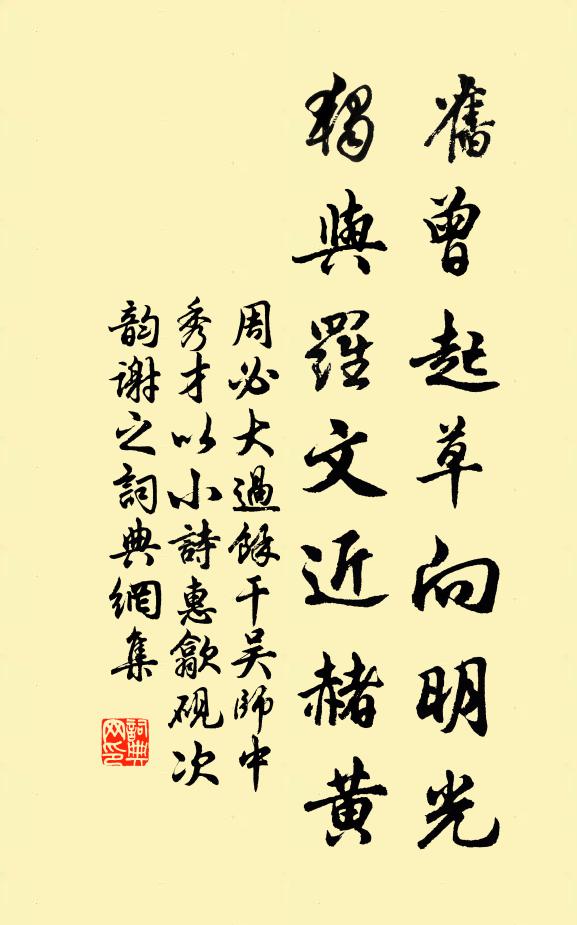 舊曾起草向明光
獨與羅文近赭黃
周必大過餘干吴師中
秀才以小詩惠歙硯次
韵謝之詞典網集
詞典
网印